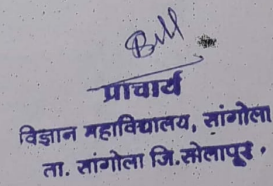 प्राचार्य
विज्ञान महाविद्यालय, सांगोला
ता. सांगोला जि.सोलापूर.